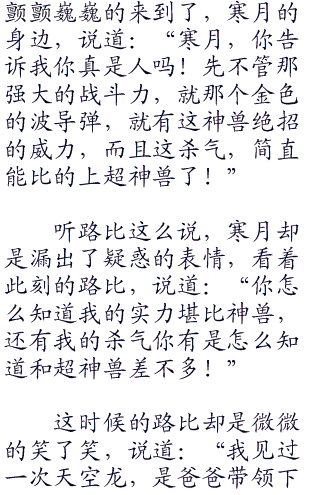 颤颤巍巍的来到了，寒月的
身边，说道：“寒月，你告
诉我你真是人吗！先不管那
强大的战斗力，就那个金色
的波导弹，就有这神兽绝招
的威力，而且这杀气，简直
能比的上超神兽了！”
听路比这么说，寒月却
是漏出了疑惑的表情，看着
此刻的路比，说道：“你怎
么知道我的实力堪比神兽，
还有我的杀气你有是怎么知
道和超神兽差不多！”
这时候的路比却是微微
的笑了笑，说道：“我见过
一次天空龙，是爸爸带领下